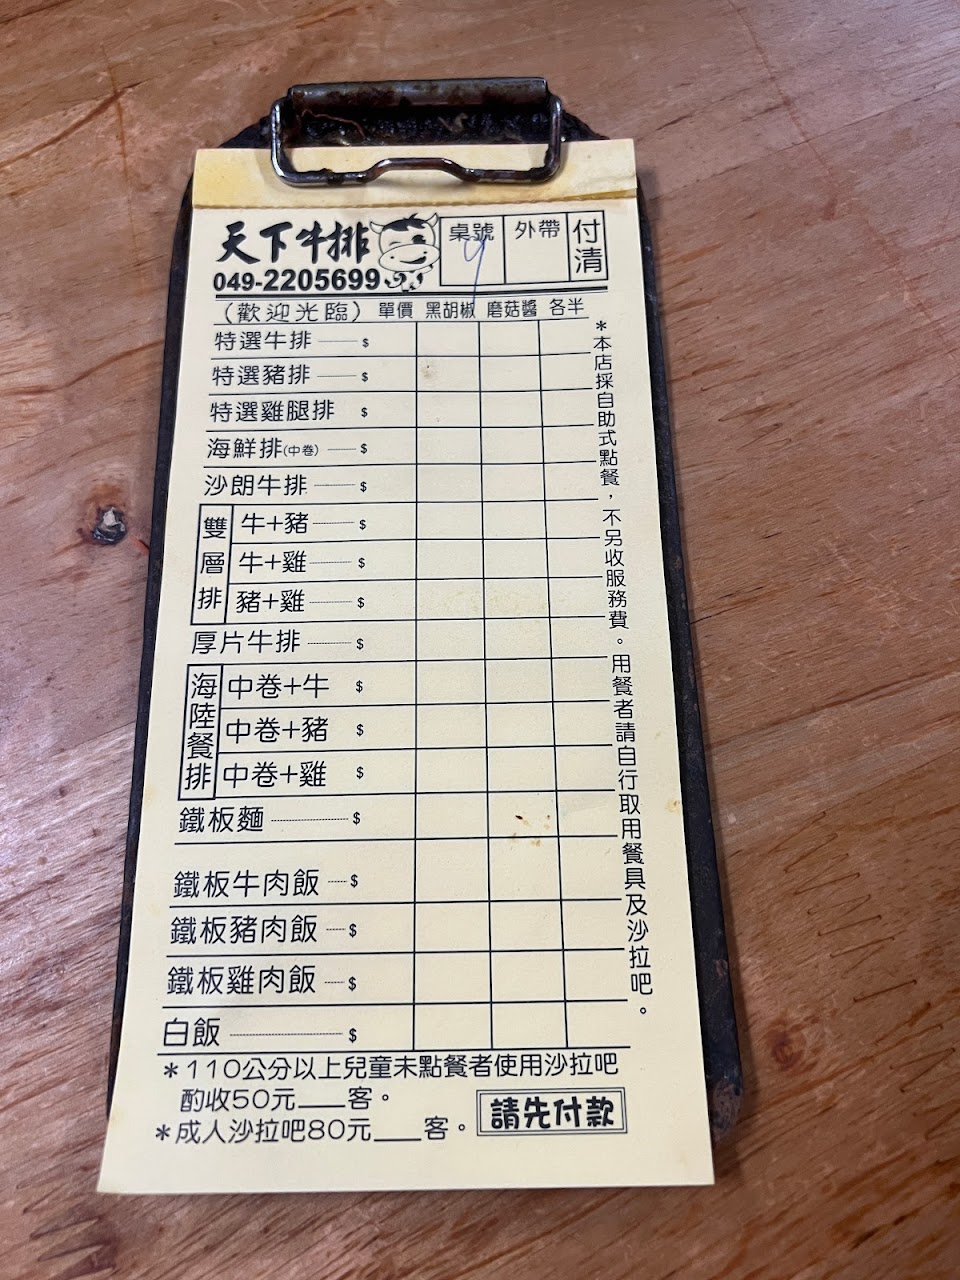 天下牛排
049-2205699
桌號 9
外帶
付清
(歡迎光臨) 單價 黑胡椒 磨菇醬 各半
特選牛排 $
特選豬排 $
特選雞腿排 $
海鮮排(中卷) $
沙朗牛排 $
雙層排
牛+豬 $
牛+雞 $
豬+雞 $
厚片牛排 $
海陸餐排
中卷+牛 $
中卷+豬 $
中卷+雞 $
鐵板麵 $
鐵板牛肉飯 $
鐵板豬肉飯 $
鐵板雞肉飯 $
白飯 $
*本店採自助式點餐，不另收服務費。用餐者請自行取用餐具及沙拉吧。
*110公分以上兒童未點餐者使用沙拉吧
酌收50元___客。
*成人沙拉吧80元___客。
請先付款